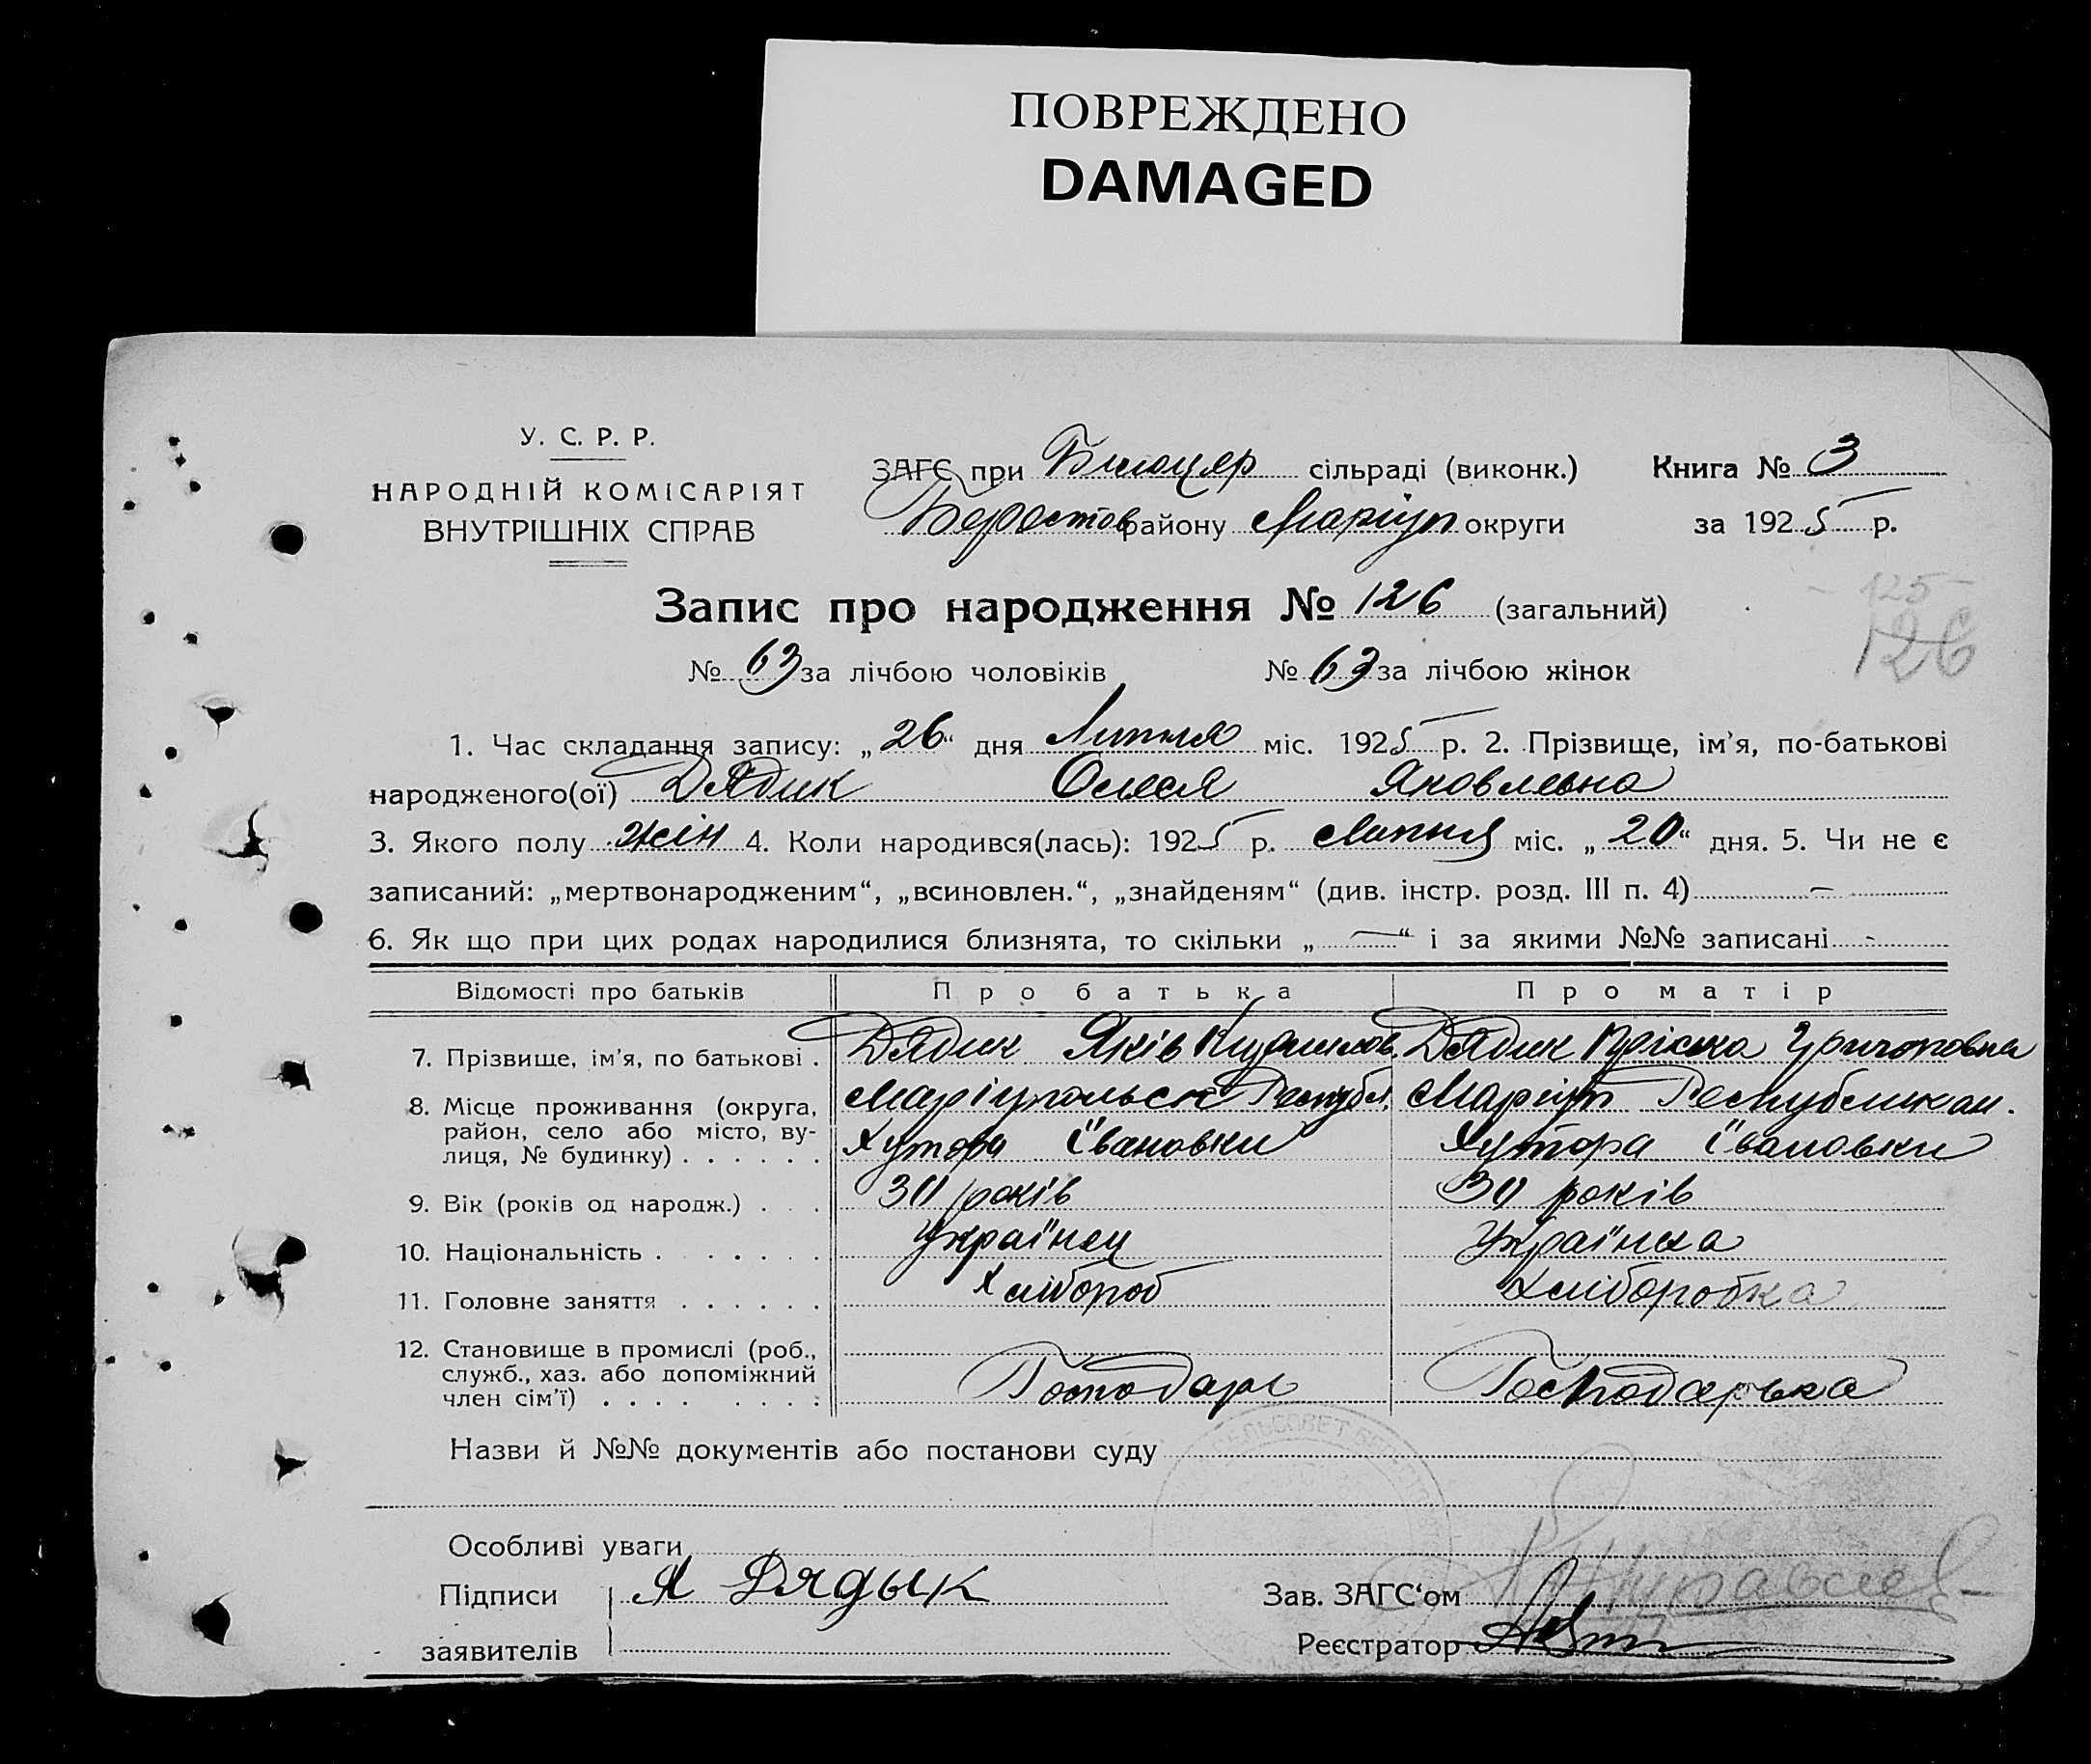 ПОВРЕЖДЕНО
DAMAGED
У. С. Р. Р.
НАРОДНІЙ КОМІСАРІЯТ
ВНУТРІШНІХ СПРАВ
ЗАГС при сільраді (виконк.) Книга № 3
Берестов району Маріуп округи за 1925 р.
Запис про народження № 126 (загальний)
125
126
№ 63 за лічбою чоловіків № 63 за лічбою жінок
1. Час складання запису: „26“ дня Липня міс. 1925 р. 2. Прізвище, ім’я, по-батькові
народженого(ої) Дядик Олеся Яковлевна
3. Якого полу жін 4. Коли народився(лась): 1925 р. Липня міс. „20“ дня. 5. Чи не є
записаний: „мертвонародженим“, „всиновлен.“, „знайденям“ (див. інстр. розд. III п. 4) —
6. Як що при цих родах народилися близнята, то скільки „—“ і за якими №№ записані -
Відомості про батьків Про батька Про матір
7. Прізвище, ім’я, по батькові . Дядик Яків Дядик Пріська
8. Місце проживання (округа, Маріупольск Республ. Маріуп Республикан.
район, село або місто, ву-
лиця, № будинку) . . . . . . Хутора Івановки Хутора Івановки
9. Вік (років од народж.) . . . 30 років 30 років
10. Національність . . . . . . Українец Українка
11. Головне заняття . . . . . . Хлібороб Хліборобка
12. Становище в промислі (роб.,
служб., хаз. або допоміжний
член сім’ї) . . . . . . . . Господарь Господарька
Назви й №№ документів або постанови суду
Особливі уваги
Підписи Я Дядык Зав. ЗАГС‘ом
заявителів Реєстратор